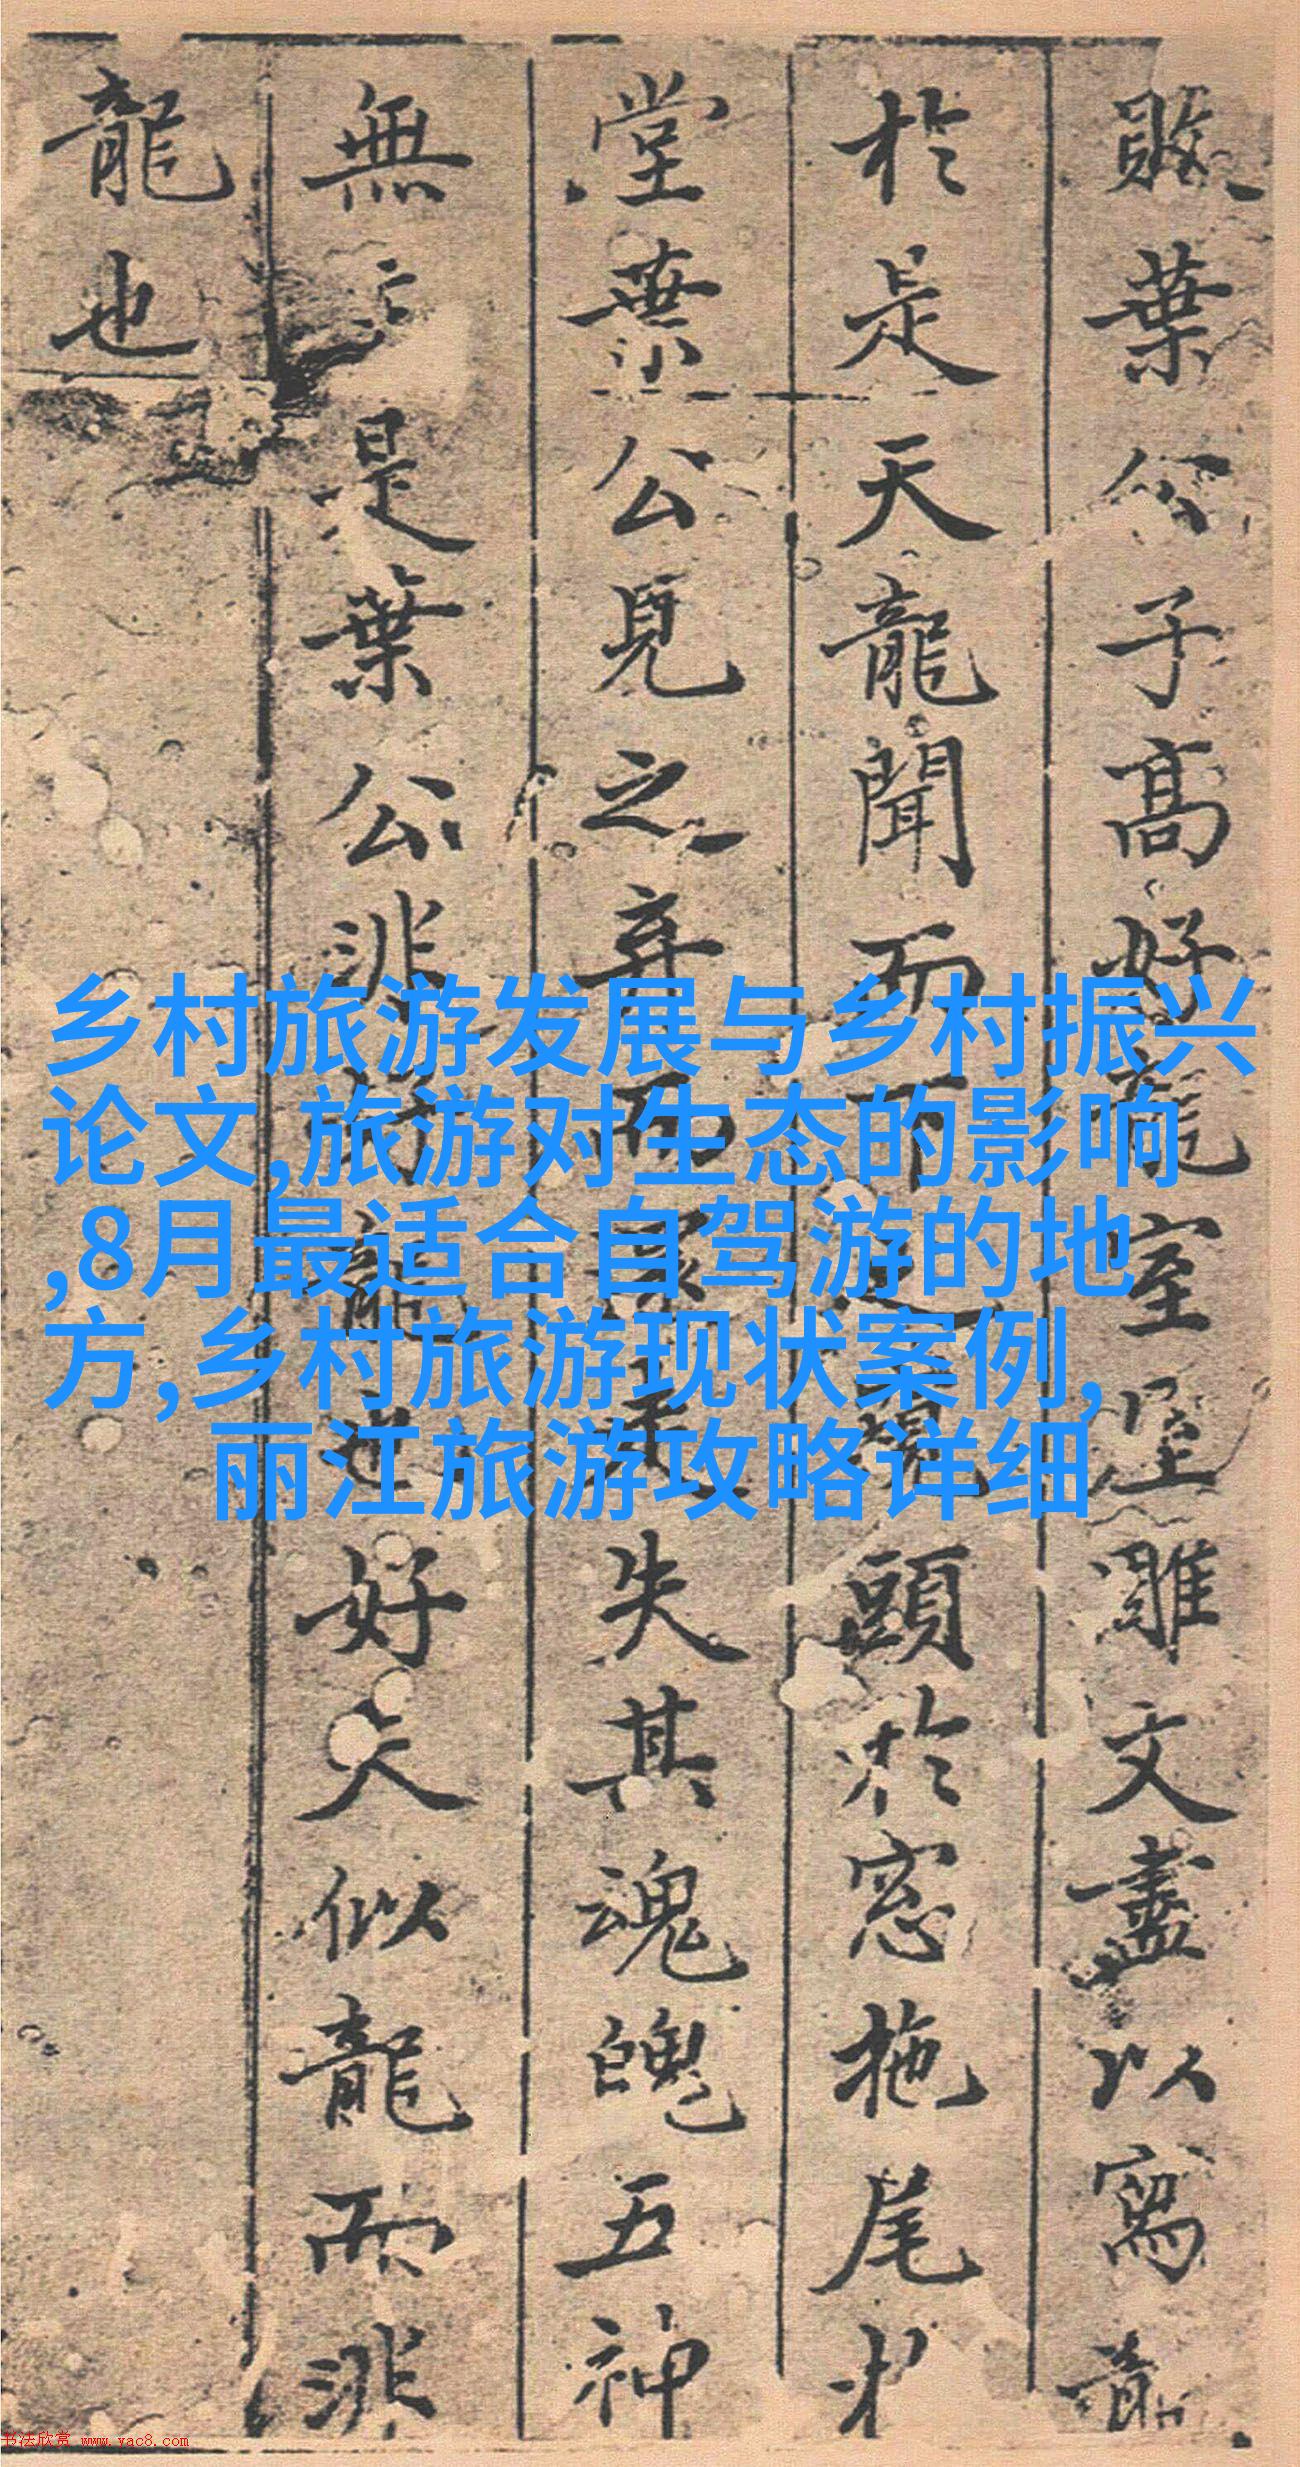 敗葉公子高好龍室堊雕文盡以寫龍
於是天龍聞而下之窺頭於窓拖尾於
堂葉公見之弃而還走失其魂魄五神
無主是葉公非好龍也好夫似龍而非
龍也
乡村旅游发展与乡村振兴
论文,旅游对生态的影响
,8月最适合自驾游的地
方,乡村旅游现状案例,
丽江旅游攻略详细
书法欣赏 www.yac8.com